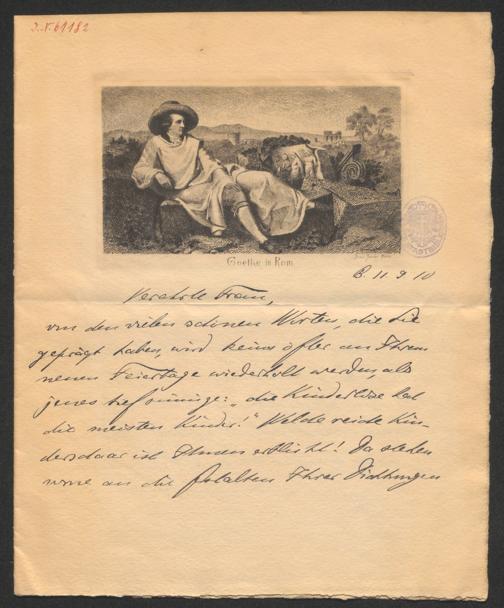 J.N. 61182
Goethe in Rom
B. 11. 9 10
Verehrte Frau,
von den vielen schönen Worten, die Sie
geprägt haben, wird keins öfter an Ihrem
neuen Feiertage wiederholt werden, als
jenes tiefsinnige: „die Kinderlose hat
die meisten Kinder!" Welch reiche Kin-
derschaar ist Ihnen erblüht! Da stehen
vorne an die Gestalten Ihrer Dichtungen